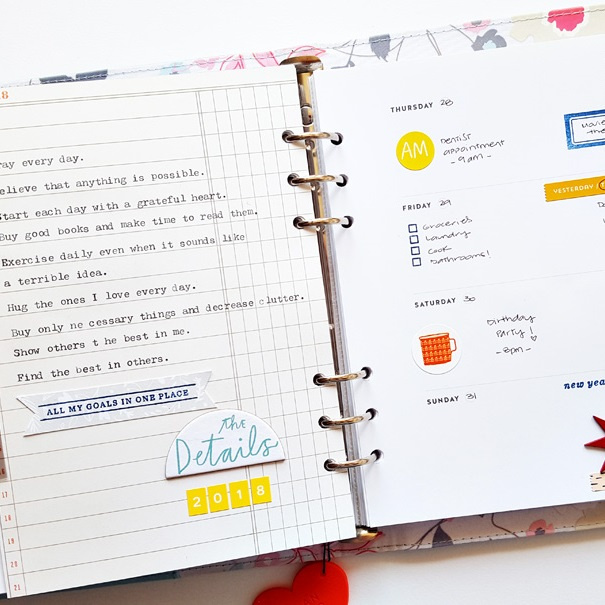 8
ray every day.
elieve that anything is possible.
Start each day with a grateful heart.
Buy good books and make time to read them.
Exercise daily even when it sounds like
a terrible idea.
Hug the ones I love every day.
Buy only ne cessary things and decrease clutter.
Show others t he best in me.
Find the best in others.
ALL MY GOALS IN ONE PLACE
the
Details
2018
17
18
19
20
21
THURSDAY 28
AM
Dentist
appointment
- 9am -
Movie
the
FRIDAY 29
YESTERDAY
Groceries
Laundry
Cook
Bathrooms!
SATURDAY 30
Birthday
Party!
- 8pm -
SUNDAY 31
new yea